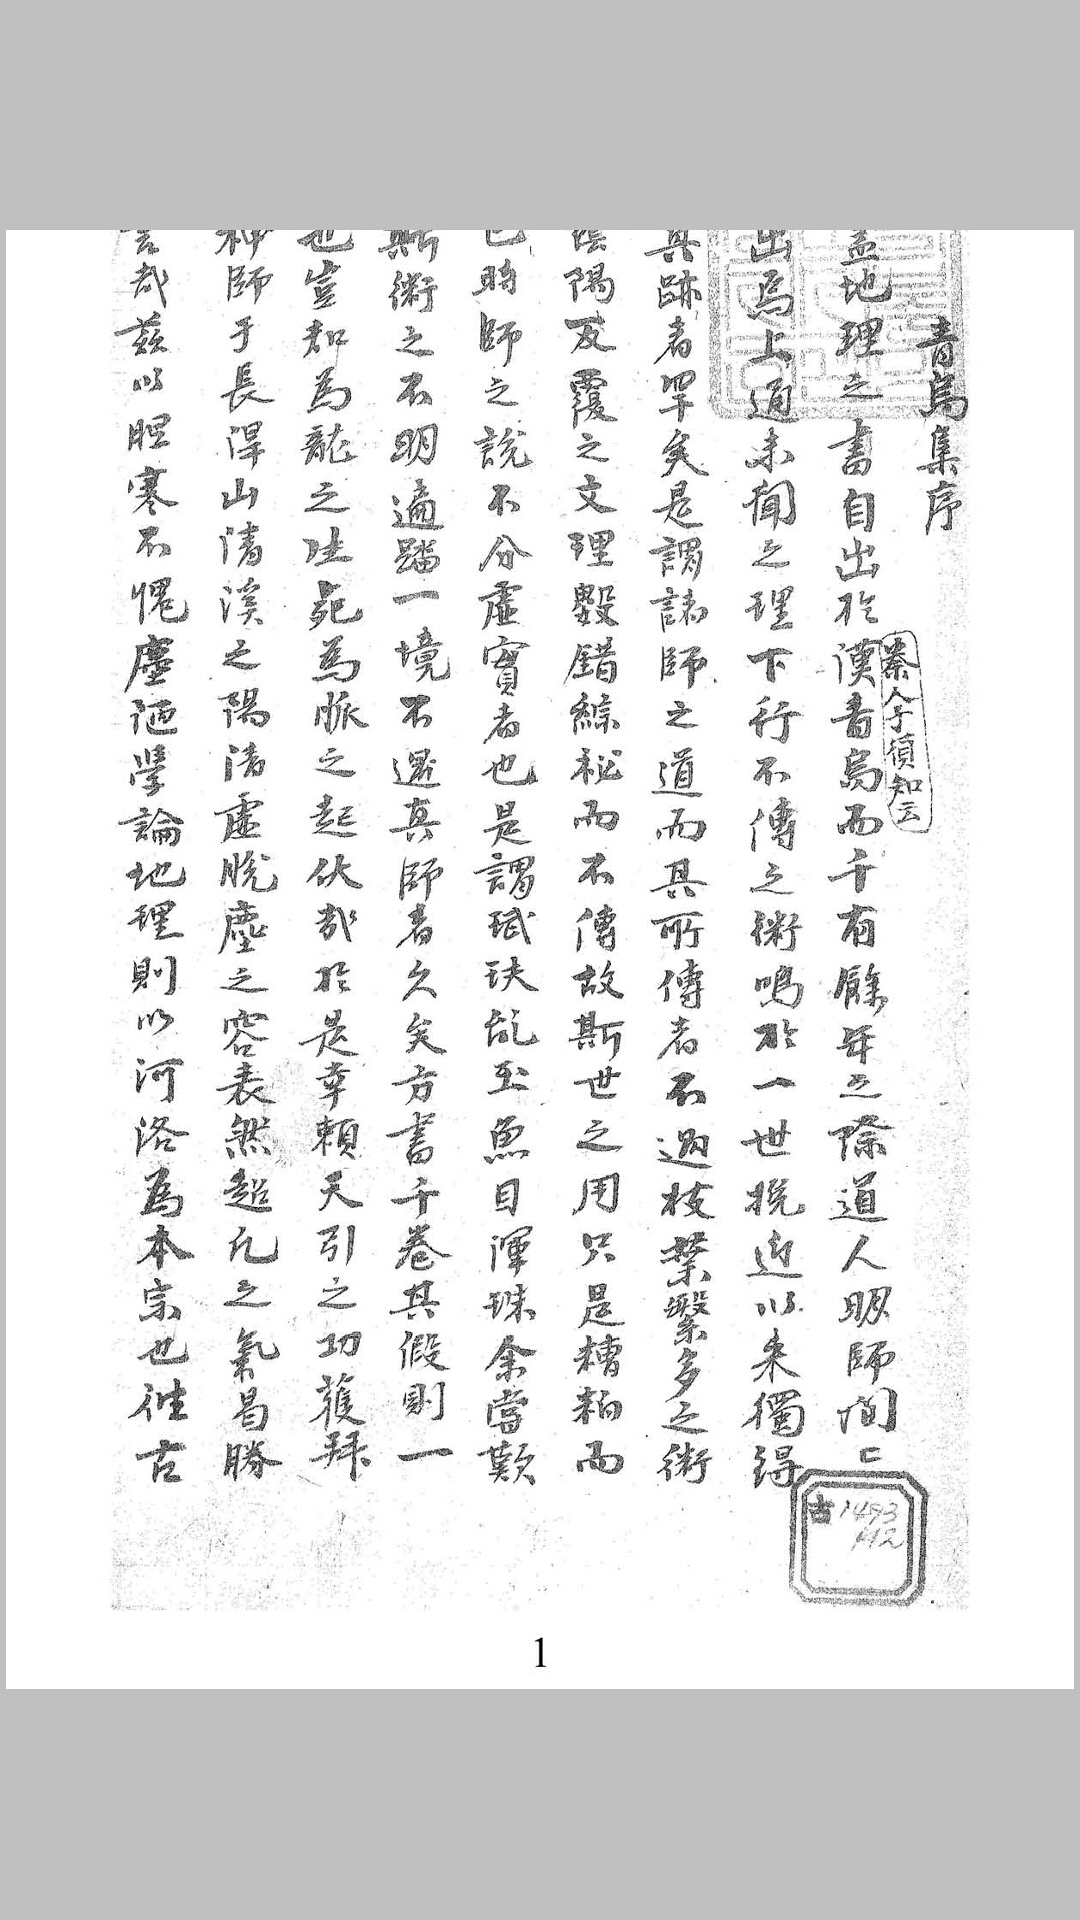 青烏集序
蓋地理之書自出於漢青烏而千有餘年之際道人明師間〻
秦人子須知云
出焉上通未聞之理下行不傳之術鳴於一世挽近以来獨得
其跡者罕矣是謂諸師之道而其所傳者不過枝葉繫多之術
陰陽反覆之文理毀錯綜秘而不傳故斯世之用只是糟粕而
已時師之説不分虛實者也是謂珷玞乱玉魚目渾珠余嘗歎
斯術之不明遍踏一境不遇真師者久矣方書千卷其假則一
也豈知為龍之生死為脈之起伏哉於是幸賴天引之功獲拜
神師于長淂山清溪之陽清虛脱塵之容表然超凡之氣曷勝
言哉兹以胆寒不愧塵陋學論地理則以河洛為本宗也徃古
古 1493
1